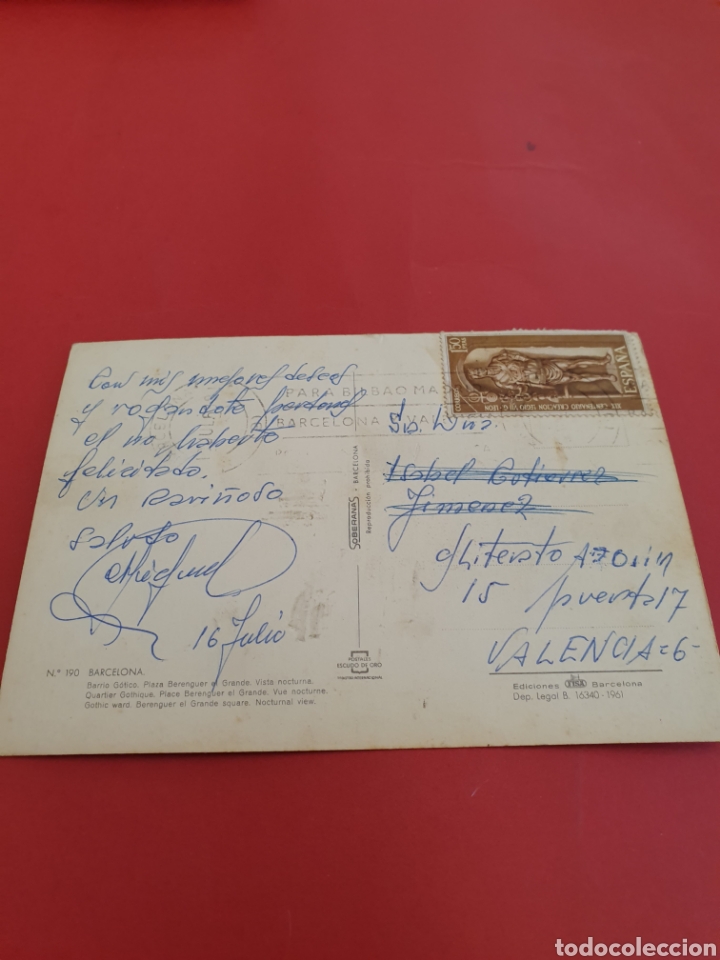 Con mis mejores deseos
y rogándote perdones
el no haberte
felicitado.
Un cariñoso
saludo
Miguel
16 Julio
PARA BILBAO MA
BARCELONA VA
150 PTAS
ESPAÑA
XIX CENTENARIO CREACION LEGIO VII G LEON
CORREO
Sr. Dña.
Isabel Gutierrez
Jimenez
Literato Azorin
15 puerta 17
VALENCIA=6-
SOBERANAS - BARCELONA
Reproducción prohibida
POSTALES
ESCUDO DE ORO
N.º 190 BARCELONA.
Barrio Gótico. Plaza Berenguer el Grande. Vista nocturna.
Quartier Gothique. Place Berenguer el Grande. Vue nocturne.
Gothic ward. Berenguer el Grande square. Nocturnal view.
Ediciones FISA Barcelona
Dep. Legal B. 16340 - 1961
todocoleccion